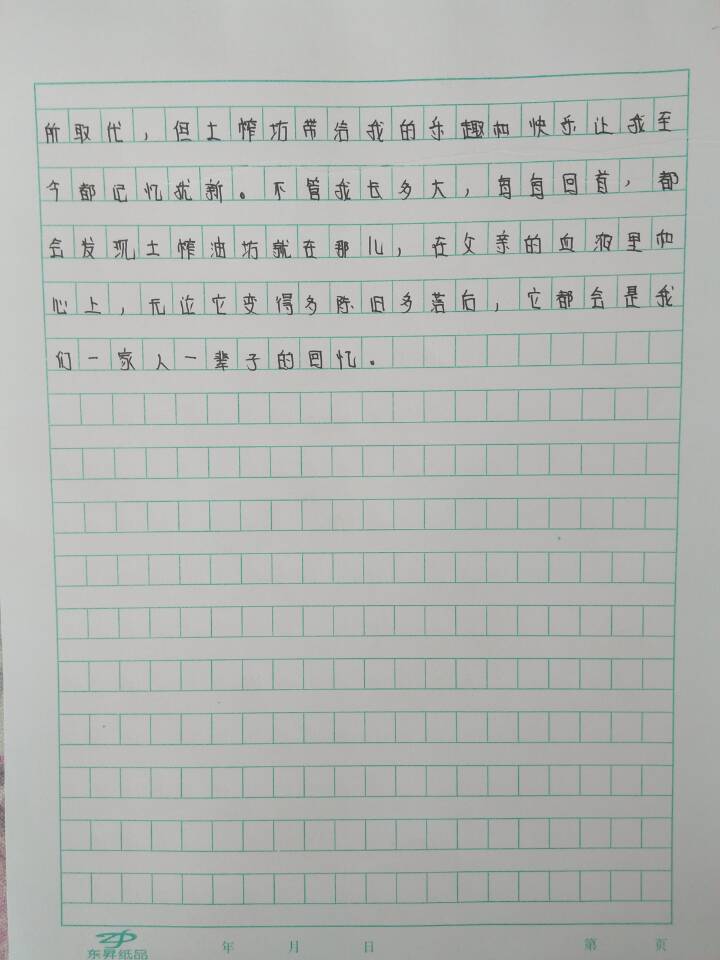 所取代，但土榨坊带给我的乐趣和快乐让我至
今都记忆犹新。不管我长多大，每每回首，都
会发现土榨油坊就在那儿，在父亲的血液里和
心上，无论它变得多陈旧多落后，它都会是我
们一家人一辈子的回忆。
东昇纸品 年 月 日 第 页